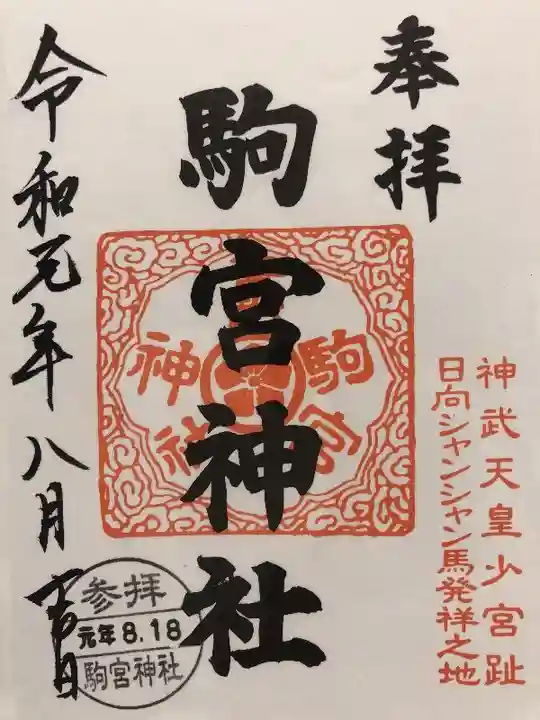 奉拝
駒宮神社
駒宮神社
神武天皇少宮趾
日向シャンシャン馬発祥之地
令和元年八月十八日
参拝
元年8.18
駒宮神社